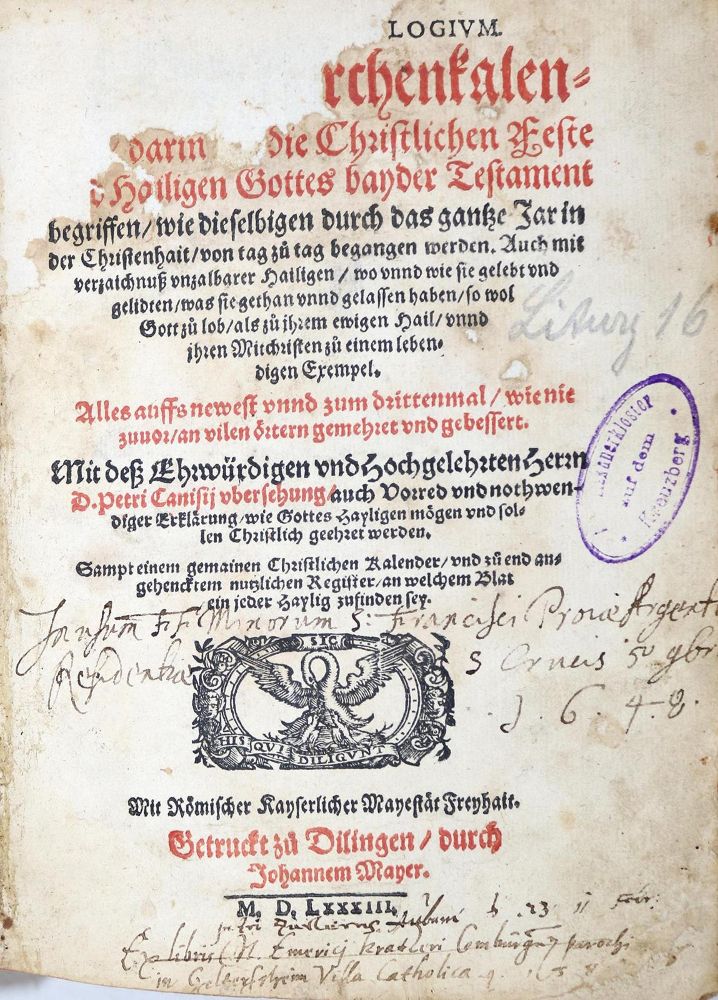 LOGIVM.
rchenkalen-
darin die Christlichen Feste
d Hailigen Gottes bayder Testament
begriffen/ wie dieselbigen durch das gantze Jar in
der Christenhait/ von tag zů tag begangen werden. Auch mit
verzaichnuß vnzalbarer Hailigen/ wo vnnd wie sie gelebt vnd
gelidten/ was sie gethan vnnd gelassen haben/ so wol
Gott zů lob/ als zů ihrem ewigen Hail/ vnnd
jhren Mitchristen zů einem leben-
digen Exempel.
Liturg 16
Alles auffs newest vnnd zum drittenmal/ wie nie
zuuor/ an vilen örtern gemehret vnd gebessert.
Mit deß Ehrwürdigen vnd Hochgelehrten Herrn
D. Petri Canisij vbersehung/ auch Vorred vnd nothwen-
diger Erklärung/ wie Gottes Hayligen mögen vnd sol-
len Christlich geehret werden.
auf dem
Kreuzberg
Sampt einem gemainen Christlichen Kalender/ vnd zů end an-
gehencktem nutzlichen Register/ an welchem Blat
ein jeder Haylig zufinden sey.
FF Minorum S: Francisci
S Crucis
1648.
SIC
HIS QVI DILIGVNT
Mit Römischer Kayserlicher Mayestät Freyhait.
Getruckt zů Dilingen/ durch
Johannem Mayer.
M. D. LXXXIII.
23
Ex libris
in Villa Catholica